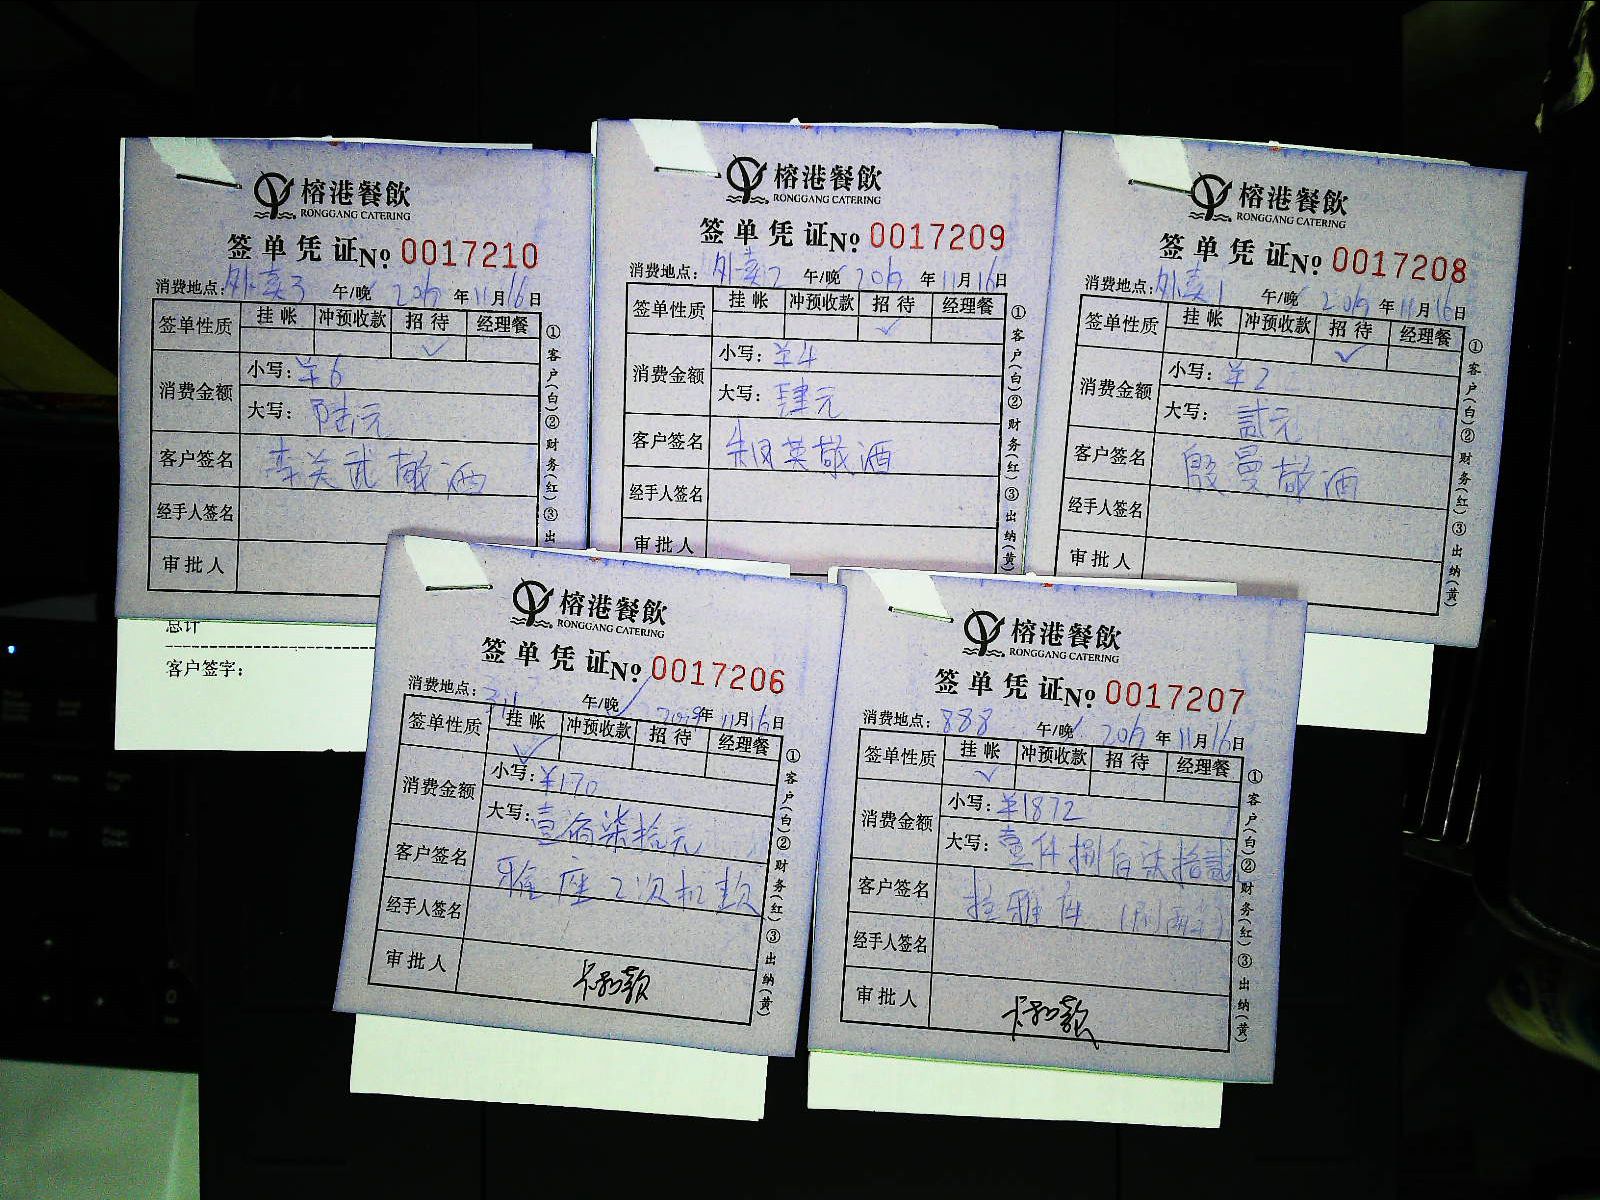 榕港餐飲
RONGGANG CATERING
签单凭证No 0017210
消费地点：外卖3 午/晚 2019年11月16日
签单性质 挂帐 冲预收款 招待 经理餐
✓
消费金额 小写：¥6
大写：陆元
客户签名 李关武敬酒
经手人签名
审批人
①客户(白)②财务(红)③出
总计
客户签字：
榕港餐飲
RONGGANG CATERING
签单凭证No 0017209
消费地点：外卖2 午/晚 2019年11月16日
签单性质 挂帐 冲预收款 招待 经理餐
✓
消费金额 小写：¥4
大写：肆元
客户签名 英敬酒
经手人签名
审批人
①客户(白)②财务(红)③出纳(黄)
榕港餐飲
RONGGANG CATERING
签单凭证No 0017208
消费地点：外卖1 午/晚 2019年11月16日
签单性质 挂帐 冲预收款 招待 经理餐
✓
消费金额 小写：¥2
大写：贰元
客户签名 殷曼敬酒
经手人签名
审批人
①客户(白)②财务(红)③出纳(黄)
榕港餐飲
RONGGANG CATERING
签单凭证No 0017206
消费地点： 午/晚 2019年11月16日
签单性质 挂帐 冲预收款 招待 经理餐
✓
消费金额 小写：¥170
大写：壹佰柒拾元
客户签名 雅座2次扣款
经手人签名
审批人 卡扣款
①客户(白)②财务(红)③出纳(黄)
榕港餐飲
RONGGANG CATERING
签单凭证No 0017207
消费地点：888 午/晚 2019年11月16日
签单性质 挂帐 冲预收款 招待 经理餐
✓
消费金额 小写：¥1872
大写：壹仟捌佰柒拾贰
客户签名 挂雅座
经手人签名
审批人 卡扣款
①客户(白)②财务(红)③出纳(黄)